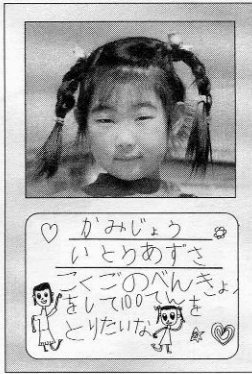 かみじょう
いとうあずさ
こくごのべんきょ
をして100てんを
とりたいな